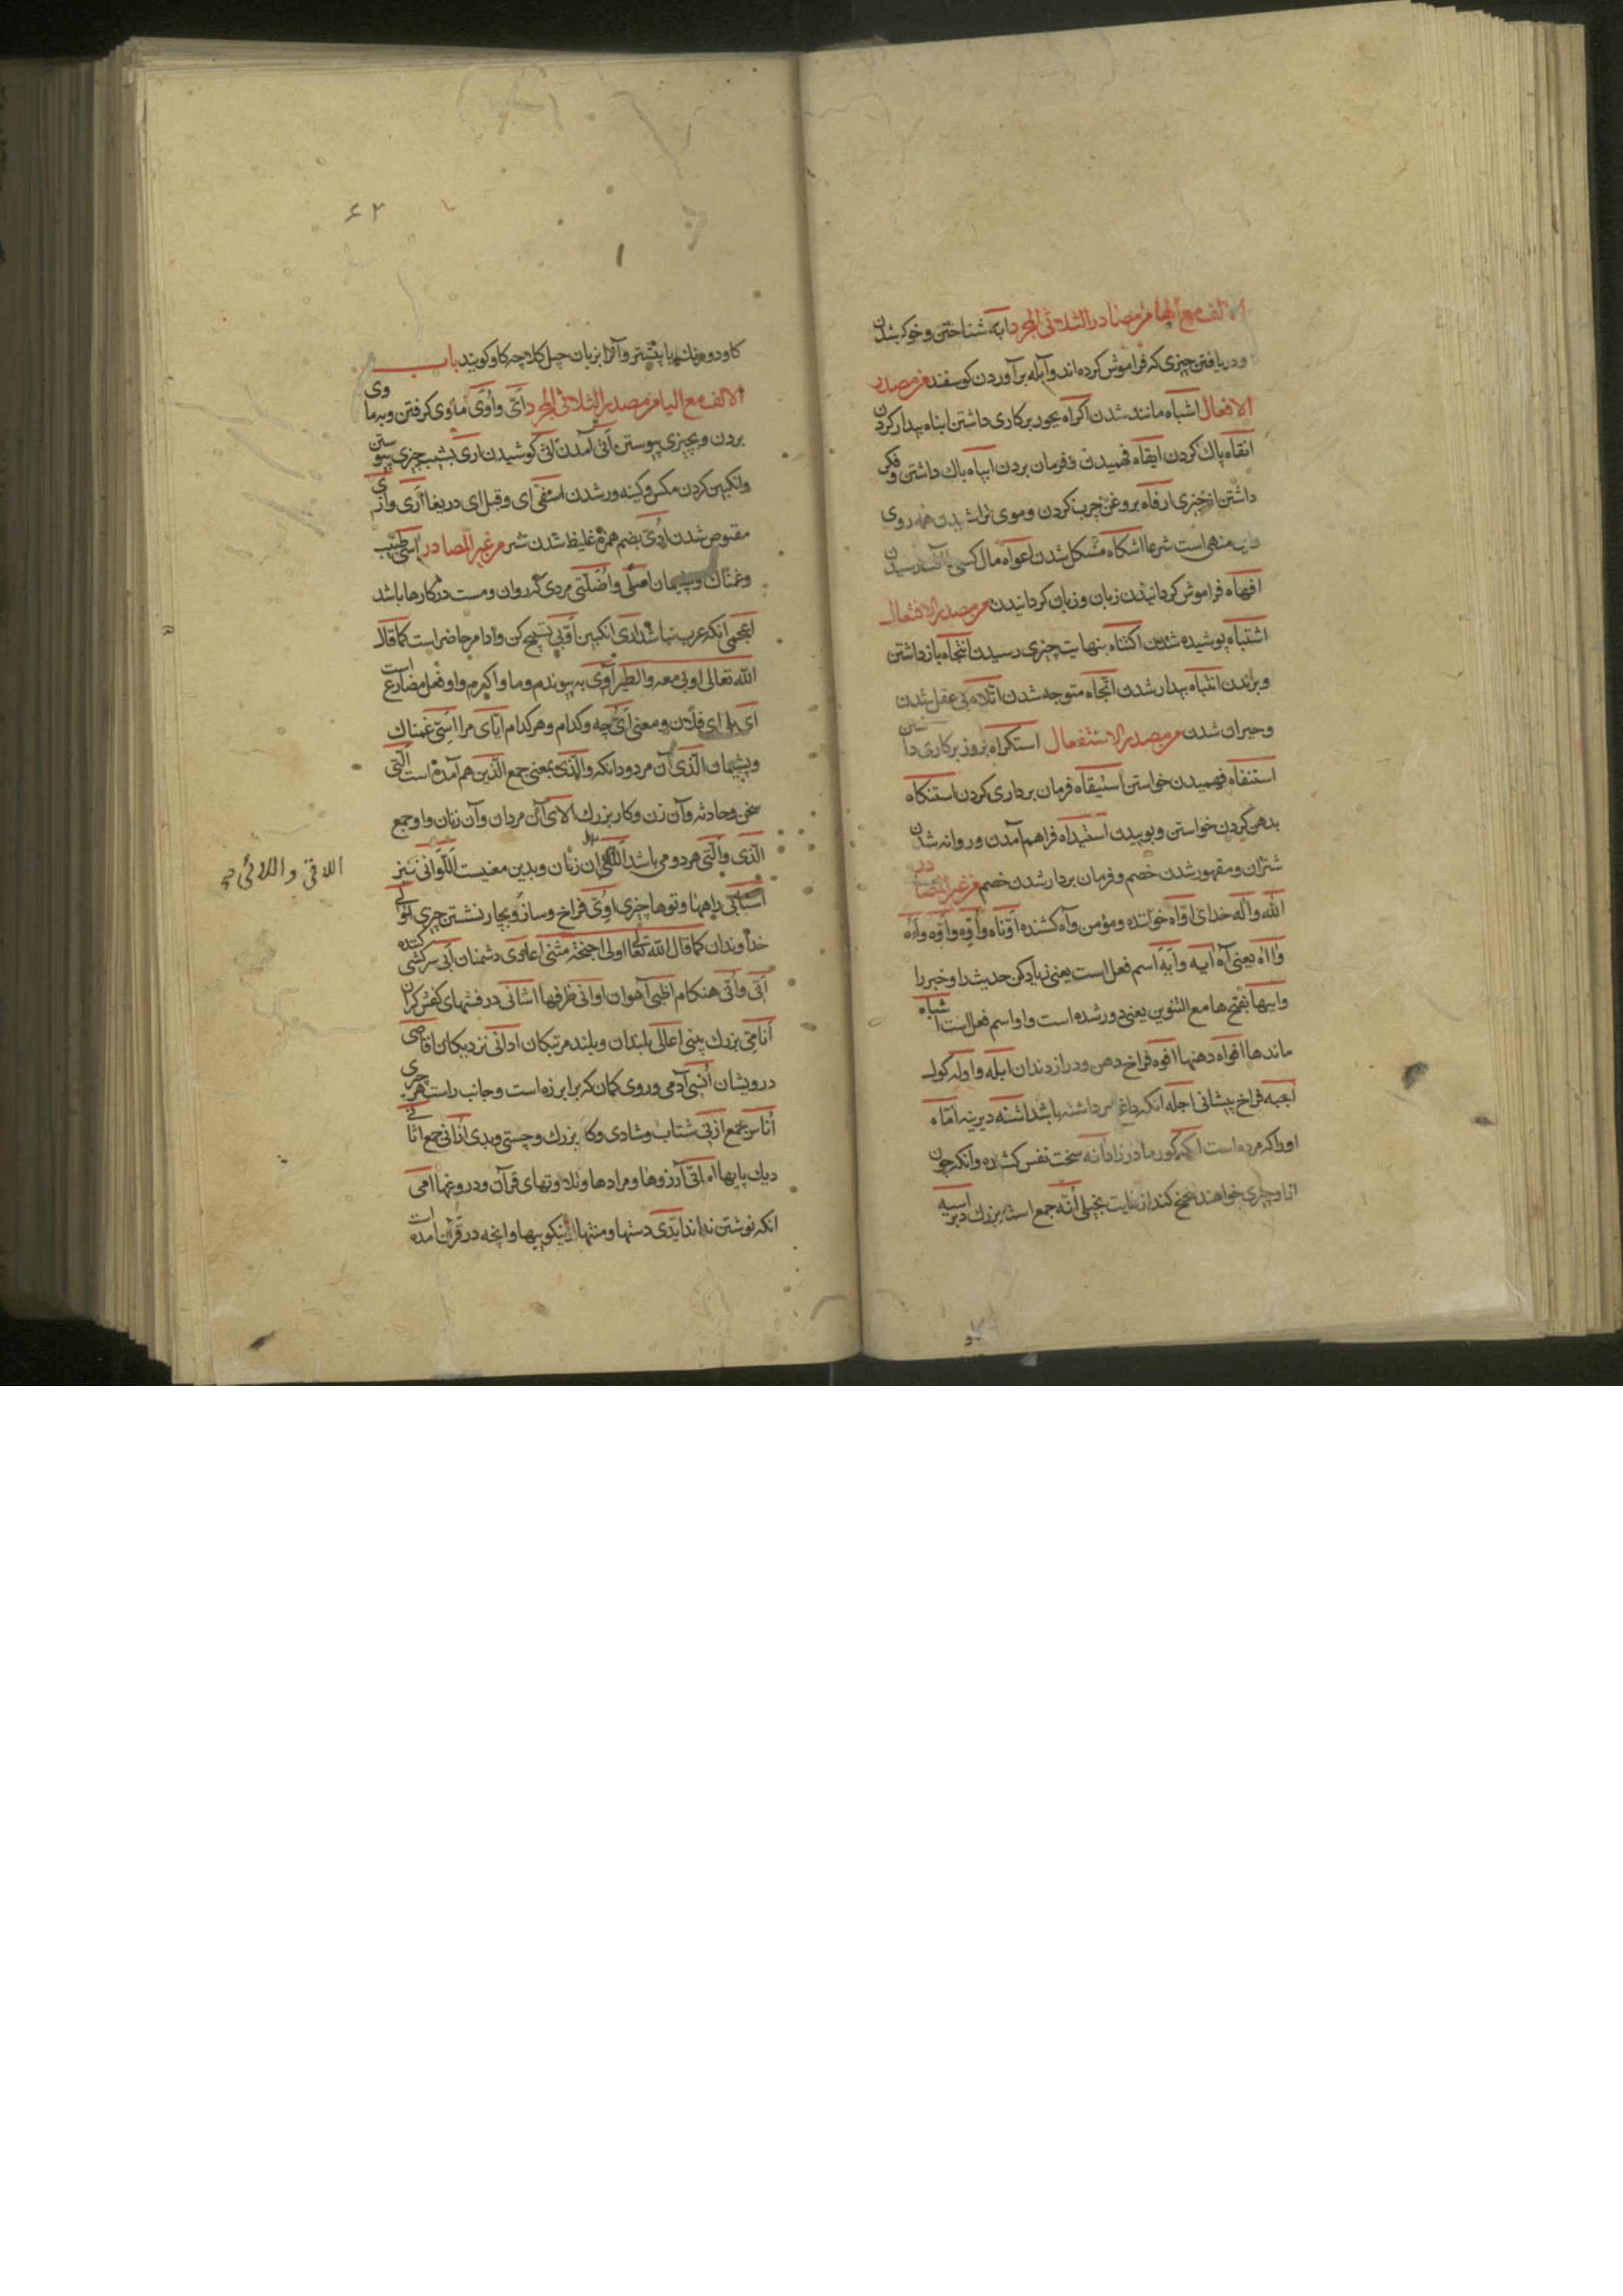 الالف مع الهاء من مصادر الثلاثی المجرد ابه شناختن و خوکر شدن
و دریافتن چیزی که فراموش کرده اند و آبله برآوردن کوسفند من مصدر
الافعال اشباه مانند شدن اکراه بجور بر کاری داشتن انباه بیدار کردن
انقاه پاک کردن ایقاه فهمیدن و فرمان بردن ایباه باک داشتن و فکر
داشتن از چیزی ارفاه بروغن چرب کردن و موی تراشیدن همه روی
و این منهی است شرعا اشکاه مشکل شدن اعواه مال کسی آفت رسیدن
افهاه فراموش کردانیدن زبان و زبان کردانیدن من مصدر الافتعال
اشتباه پوشیده شدن اکتناه بنهایت چیزی رسیدن انتجاه بازداشتن
و براندن انتباه بیدار شدن اتجاه متوجه شدن اتلاه بی عقل شدن
و حیران شدن من مصدر الاستفعال استکراه بزور بر کاری داشتن
استنفاه فهمیدن خواستن استیقاه فرمان برداری کردن استنکاه
بدهن کردن خواستن و بوییدن استیداه فراهم آمدن و روانه شدن
شتران و مقهور شدن خصم و فرمان بردار شدن خصم من غیر المصادر
الله و اله خدای اواه خواننده و مؤمن و آه کشنده اوتاه و اوه و اوه و اوه
و ااه یعنی آه ایه و ایه اسم فعل است یعنی زیاد کن حدیث را و خبر را
و ایها بفتح ها مع التنوین یعنی دور شده است و او اسم فعل است اشباه
مانندها افواه دهنها افوه فراخ دهن و دراز دندان ابله و اوله کول
اجبه فراخ پیشانی اجله انکه داغ سر داشته باشد اشنه دیرینه امتاه
او را که مرده است اکمه کور مادرزاد انه سخت نفس کشنده و انکه چون
از او چیزی خواهند تنحنح کند از غایت بخیلی أنه جمع است بزرک دبر اسیه
۶۲
کاو دو مزنک یا پیشتر و آنرا بزبان جبل کلاچه کاو کویند باب
الالف مع الیا من مصدر الثلاثی المجرد اتی و اوی ماوی کرفتن و به ماوی
بردن و بچیزی پیوستن اتی آمدن اتی کوشیدن اری بشیب چیزی پیوستن
و انکبین کردن مکس و کینه ور شدن اسفی ای و قیل ای دریغا اری و ازی
مقبوض شدن ادی بضم همزه غلیظ شدن شیر من غیر المصادر اسی طبیب
و غمناک و پشیمان اصلی و اصلتی مردی که روان و مست در کارها باشد
اعجمی انکه عرب نباشد اری انکبین اوبی تسبیح کن و او امر حاضر است کما قال
الله تعالی اوبی معه والطیر آوی به پیوندم و ماوا کیرم و او فعل مضارع است
ای بلی ای فلان و معنی ای چه و کدام و هر کدام ایای مرا اسی غمناک
و پشیمان الذی آن مرد و دانکه والذی بمعنی جمع الذین هم آمده است التی
سخن و حادثه و آن زن و کار بزرک الای آن مردان و آن زنان و او جمع
الذی و التی هر دو می باشد اللائی ان زنان و بدین معنیست اللواتی نیز
اسابی راهها و توها چیزی اوی فراخ و ساز و بچار نشستن چیزی اولی
خداوندان کما قال الله تعالی اولی اجنحة مثنی اعادی دشمنان آبی سرکشی کننده
آنی و أنی هنکام اظبی آهوان اوانی ظرفها اشانی درفشهای کفش کران
أنافی بزرک بینی اعالی بلندان و بلند مرتبکان ادانی نزدیکان اقاصی
درویشان انسی آدمی و روی کمان که برابر زه است و جانب راست هر چیزی
أناسی جمع ازبی شتاب و شادی و کار بزرک و چستی و بدی اذانی جمع اثافی
دیک پایها امانی آرزوها و مرادها و تلاوتهای قرآن و دروغها امی
انکه نوشتن نداند ایدی دستها و منتها و نیکوییها و انچه در قرآن آمده است
اللاتی و اللائی صح